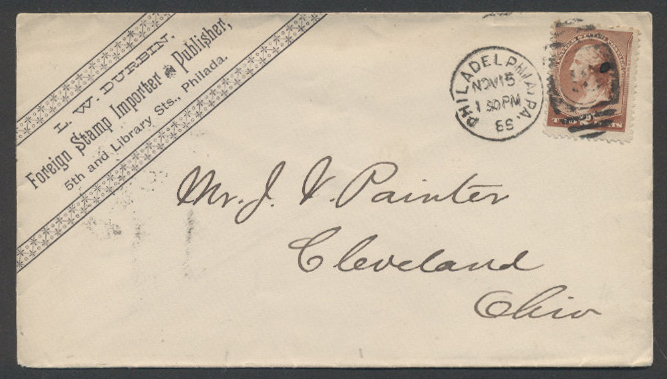 L. W. DURBIN,
Foreign Stamp Importer & Publisher,
5th and Library Sts., Philada.
PHILADELPHIA, PA.
NOV 15
1 30 PM
Mr. J. V. Painter
Cleveland
Ohio